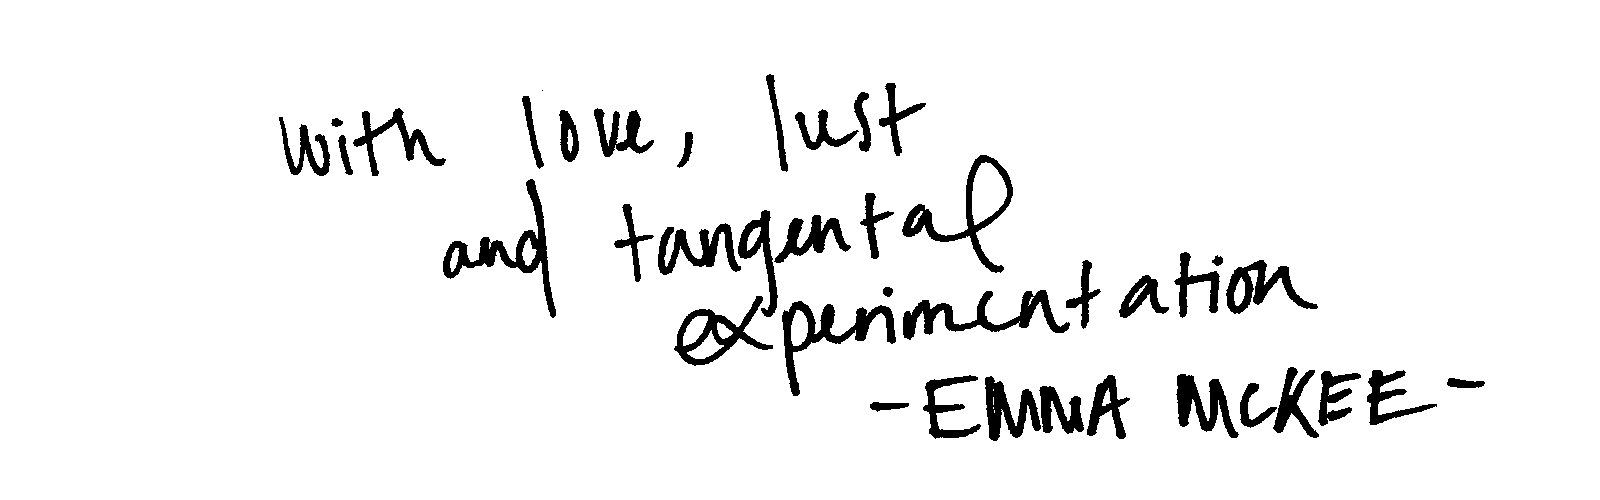 with love, lust
and tangental
experimentation
- EMMA MCKEE -